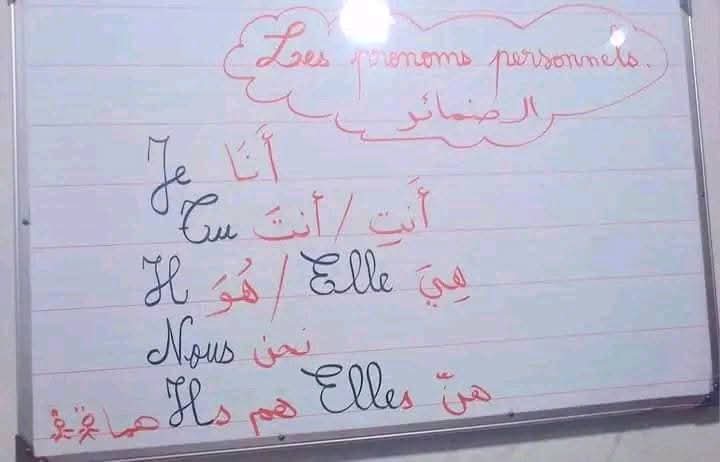 Les pronoms personnels.
الضمائر
Je أَنَا
Tu أنتَ / أَنتِ
Il هُوَ / Elle هِيَ
Nous نحن
هما Ils هم Elles هنّ